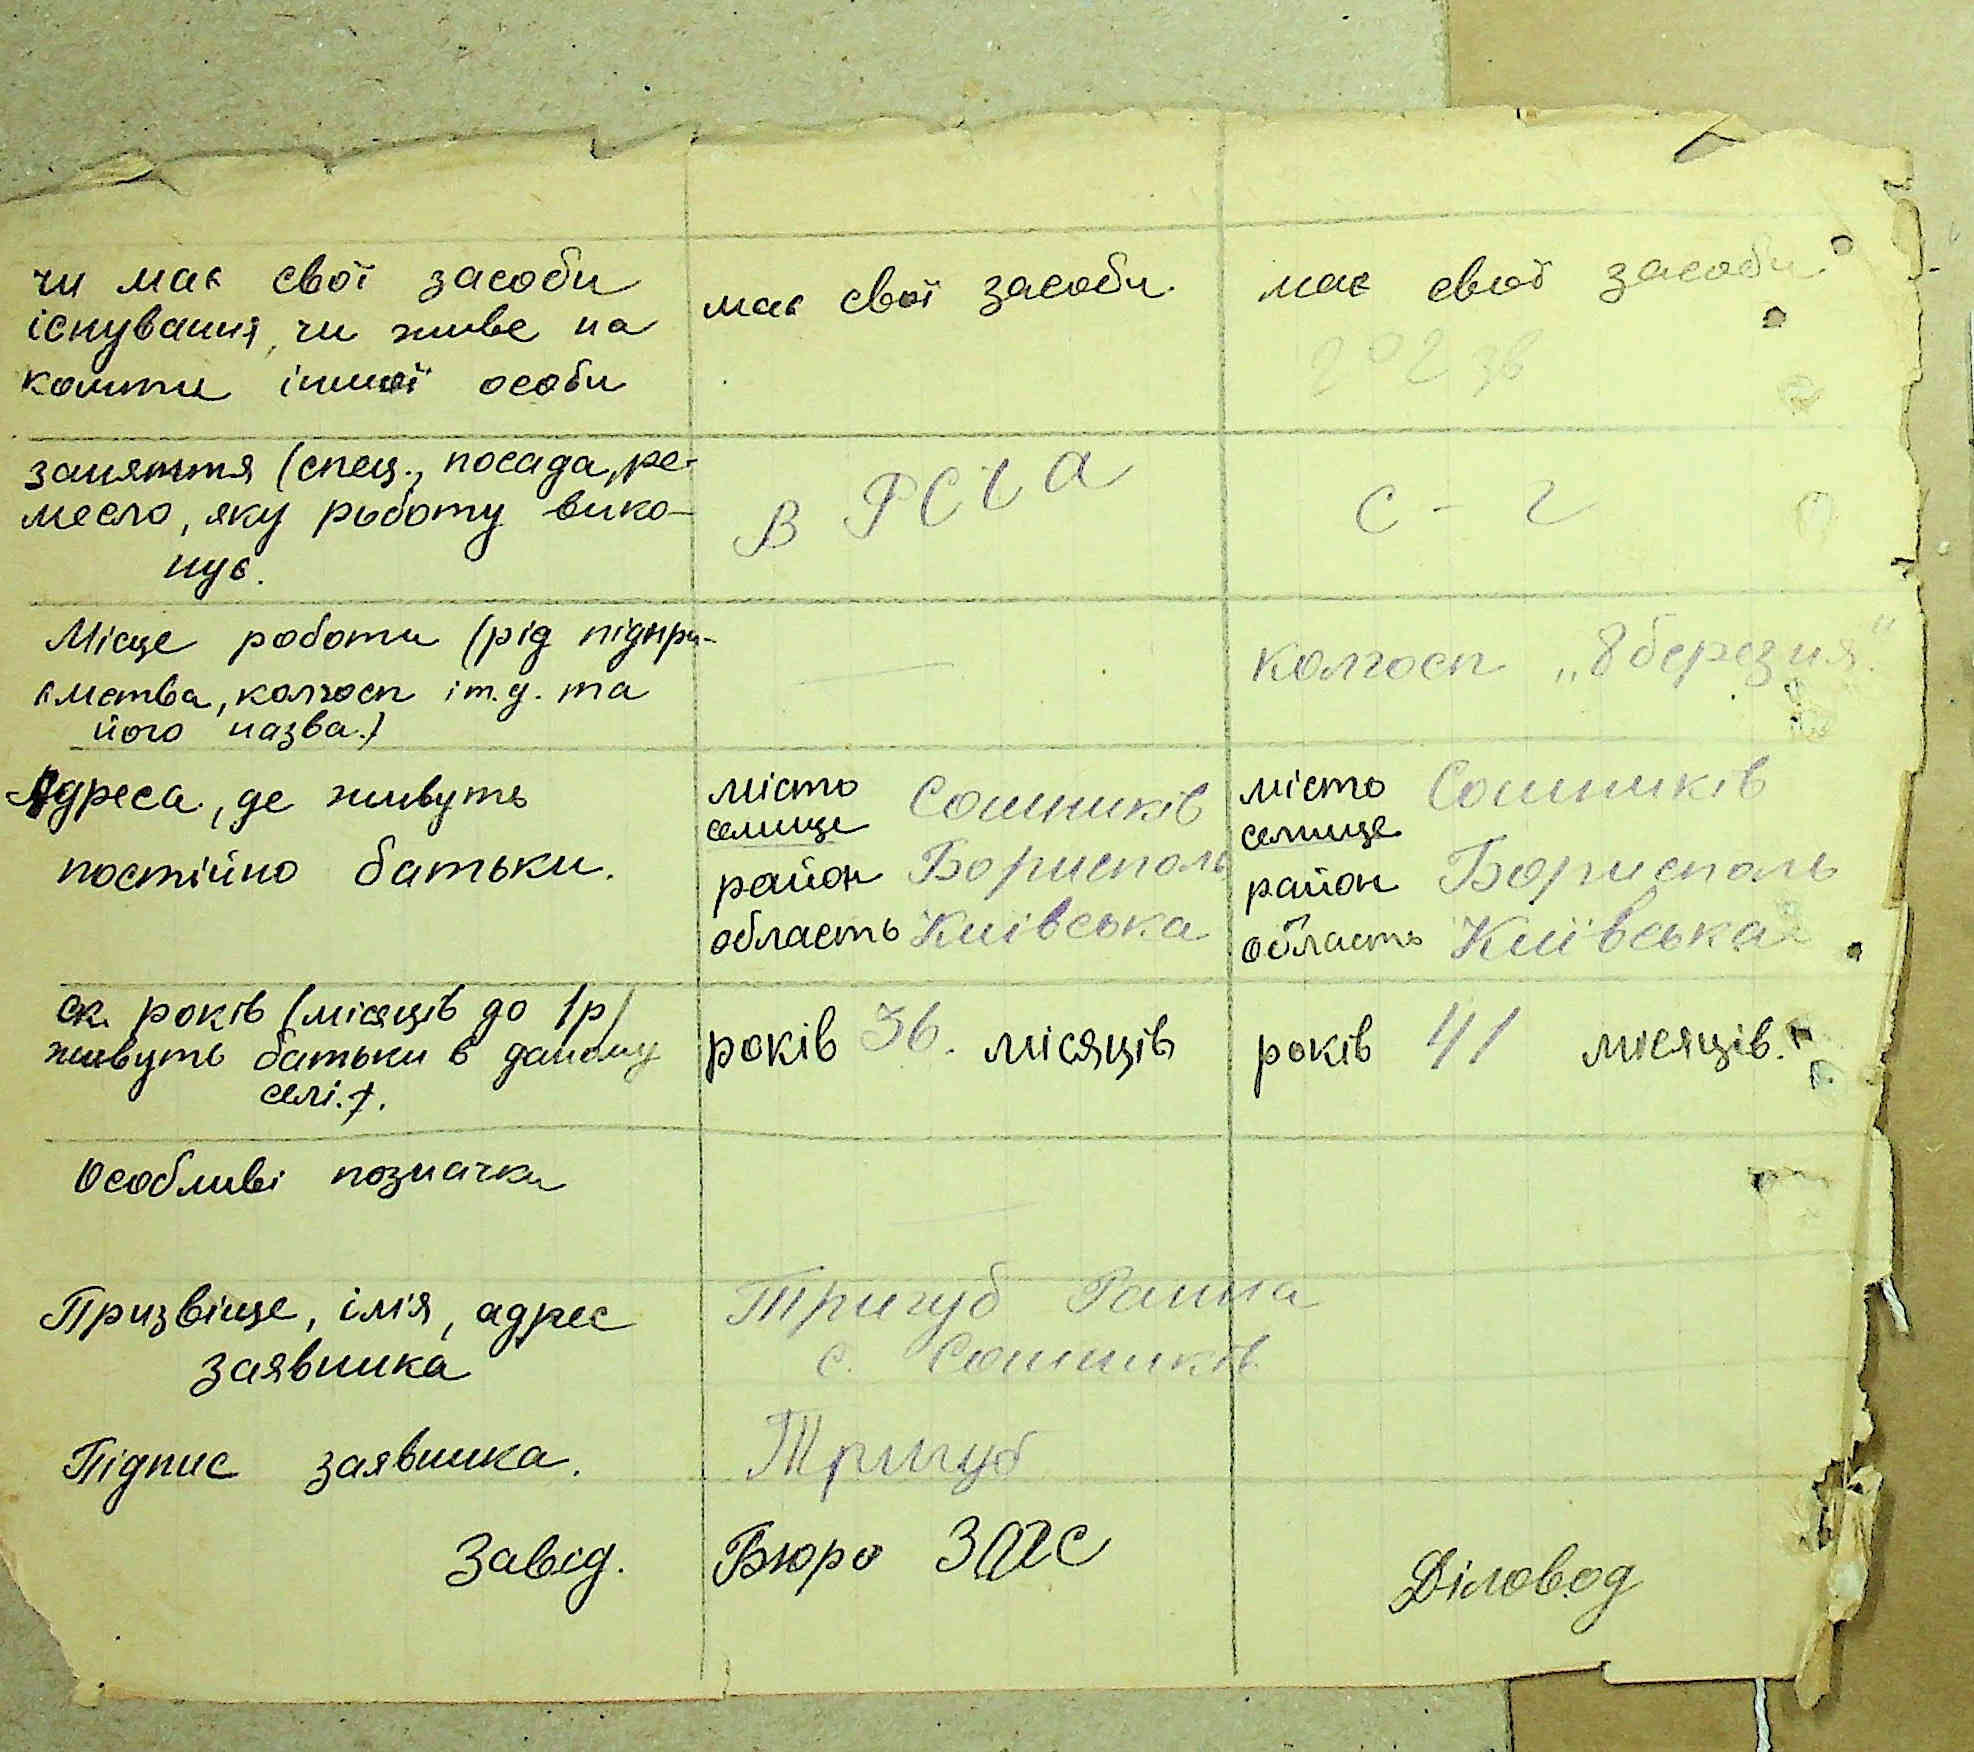 чи має свої засоби
існування, чи живе на
кошти іншої особи
має свої засоби.
має свої засоби
заняття (спец., посада, ре-
месло, яку роботу вико-
нує.
в РСЧА
с - г
Місце роботи (рід підпри-
ємства, колгосп і т.д. та
його назва.)
—
колгосп „8 березня"
Адреса, де живуть
постійно батьки.
місто Сошників
селище
район Бориспіль
область Київська
місто Сошників
селище
район Бориспіль
область Київська
ск. років (місяців до 1р)
живуть батьки в даному
селі.).
років 36. місяців
років 41 місяців.
Особливі позначки
—
Призвіще, імія, адрес
заявника
Тригуб Ганна
с. Сошників
Підпис заявника.
Тригуб
Завід. Бюро ЗАГС
Діловод